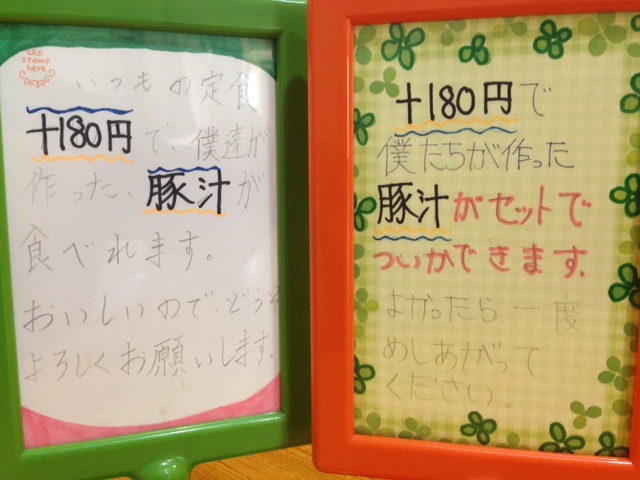 stamp
here
いつもの定食
+180円で、僕達が
作った、豚汁が
食べれます。
おいしいので、どうぞ
よろしくお願いします。
+180円で
僕たちが作った
豚汁がセットで
ついかできます。
よかったら、一度
めしあがって
ください。